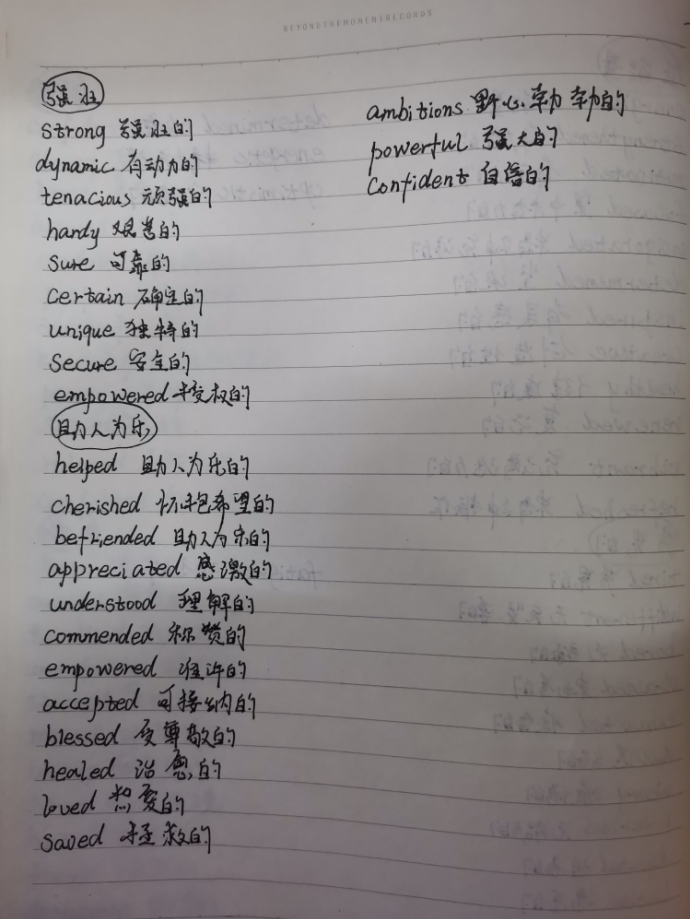 BEYONDTHEMOMENTRECORDS
强壮
strong 强壮的
dynamic 有动力的
tenacious 顽强的
hardy 艰苦的
sure 可靠的
certain 确定的
unique 独特的
secure 安全的
empowered 授权的
助人为乐
helped 助人为乐的
cherished 怀抱希望的
befriended 助人为乐的
appreciated 感激的
understood 理解的
commended 称赞的
empowered 准许的
accepted 可接纳的
blessed 受尊敬的
healed 治愈的
loved 热爱的
saved 拯救的
ambitions 野心勃勃的
powerful 强大的
confident 自信的